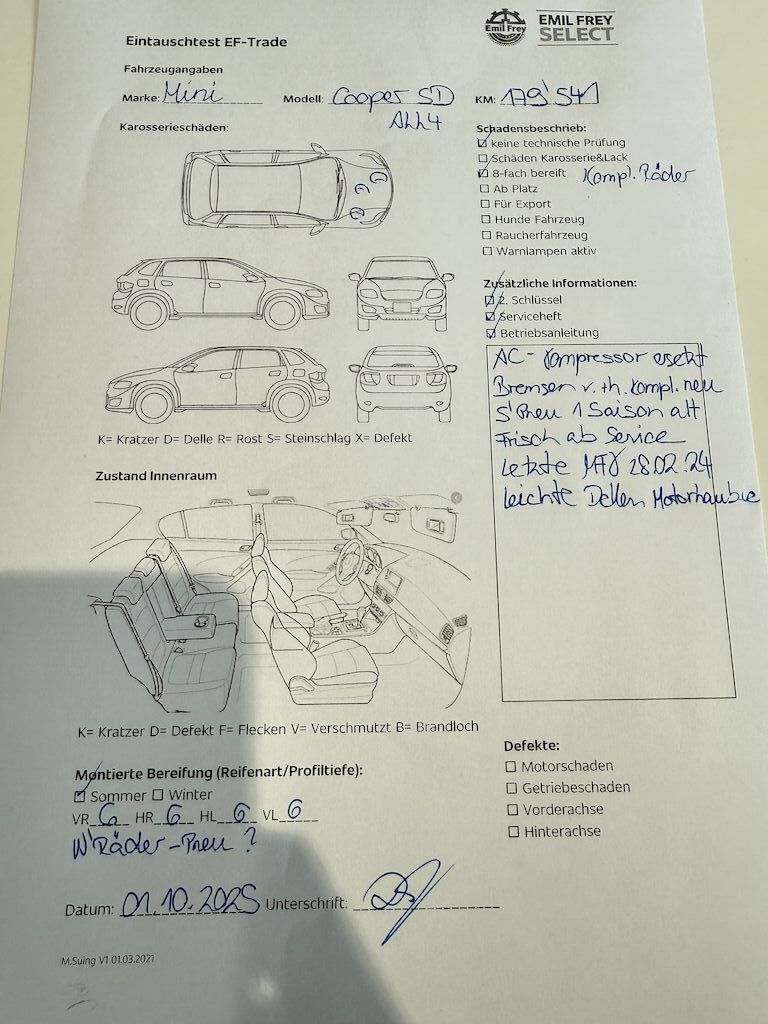 Emil Frey
EMIL FREY
SELECT
Eintauschtest EF-Trade
Fahrzeugangaben
Marke: Mini Modell: Cooper SD KM: 179'541
ALL4
Karosserieschäden:
D
D
D
Schadensbeschrieb:
☑ keine technische Prüfung
☐ Schäden Karosserie&Lack
☑ 8-fach bereift Kompl. Räder
☐ Ab Platz
☐ Für Export
☐ Hunde Fahrzeug
☐ Raucherfahrzeug
☐ Warnlampen aktiv
Zusätzliche Informationen:
☑ 2. Schlüssel
☑ Serviceheft
☑ Betriebsanleitung
AC-Kompressor ersetzt
Bremsen v. + h. Kompl. neu
S'Pneu 1 Saison alt
Frisch ab Service
Letzte MFK 28.02.24
leichte Dellen Motorhaube
K= Kratzer D= Delle R= Rost S= Steinschlag X= Defekt
Zustand Innenraum
K= Kratzer D= Defekt F= Flecken V= Verschmutzt B= Brandloch
Montierte Bereifung (Reifenart/Profiltiefe):
☑ Sommer ☐ Winter
VR 6 HR 6 HL 6 VL 6
W'Räder-Pneu ?
Defekte:
☐ Motorschaden
☐ Getriebeschaden
☐ Vorderachse
☐ Hinterachse
Datum: 01.10.2025 Unterschrift:
M.Suing V1 01.03.2021